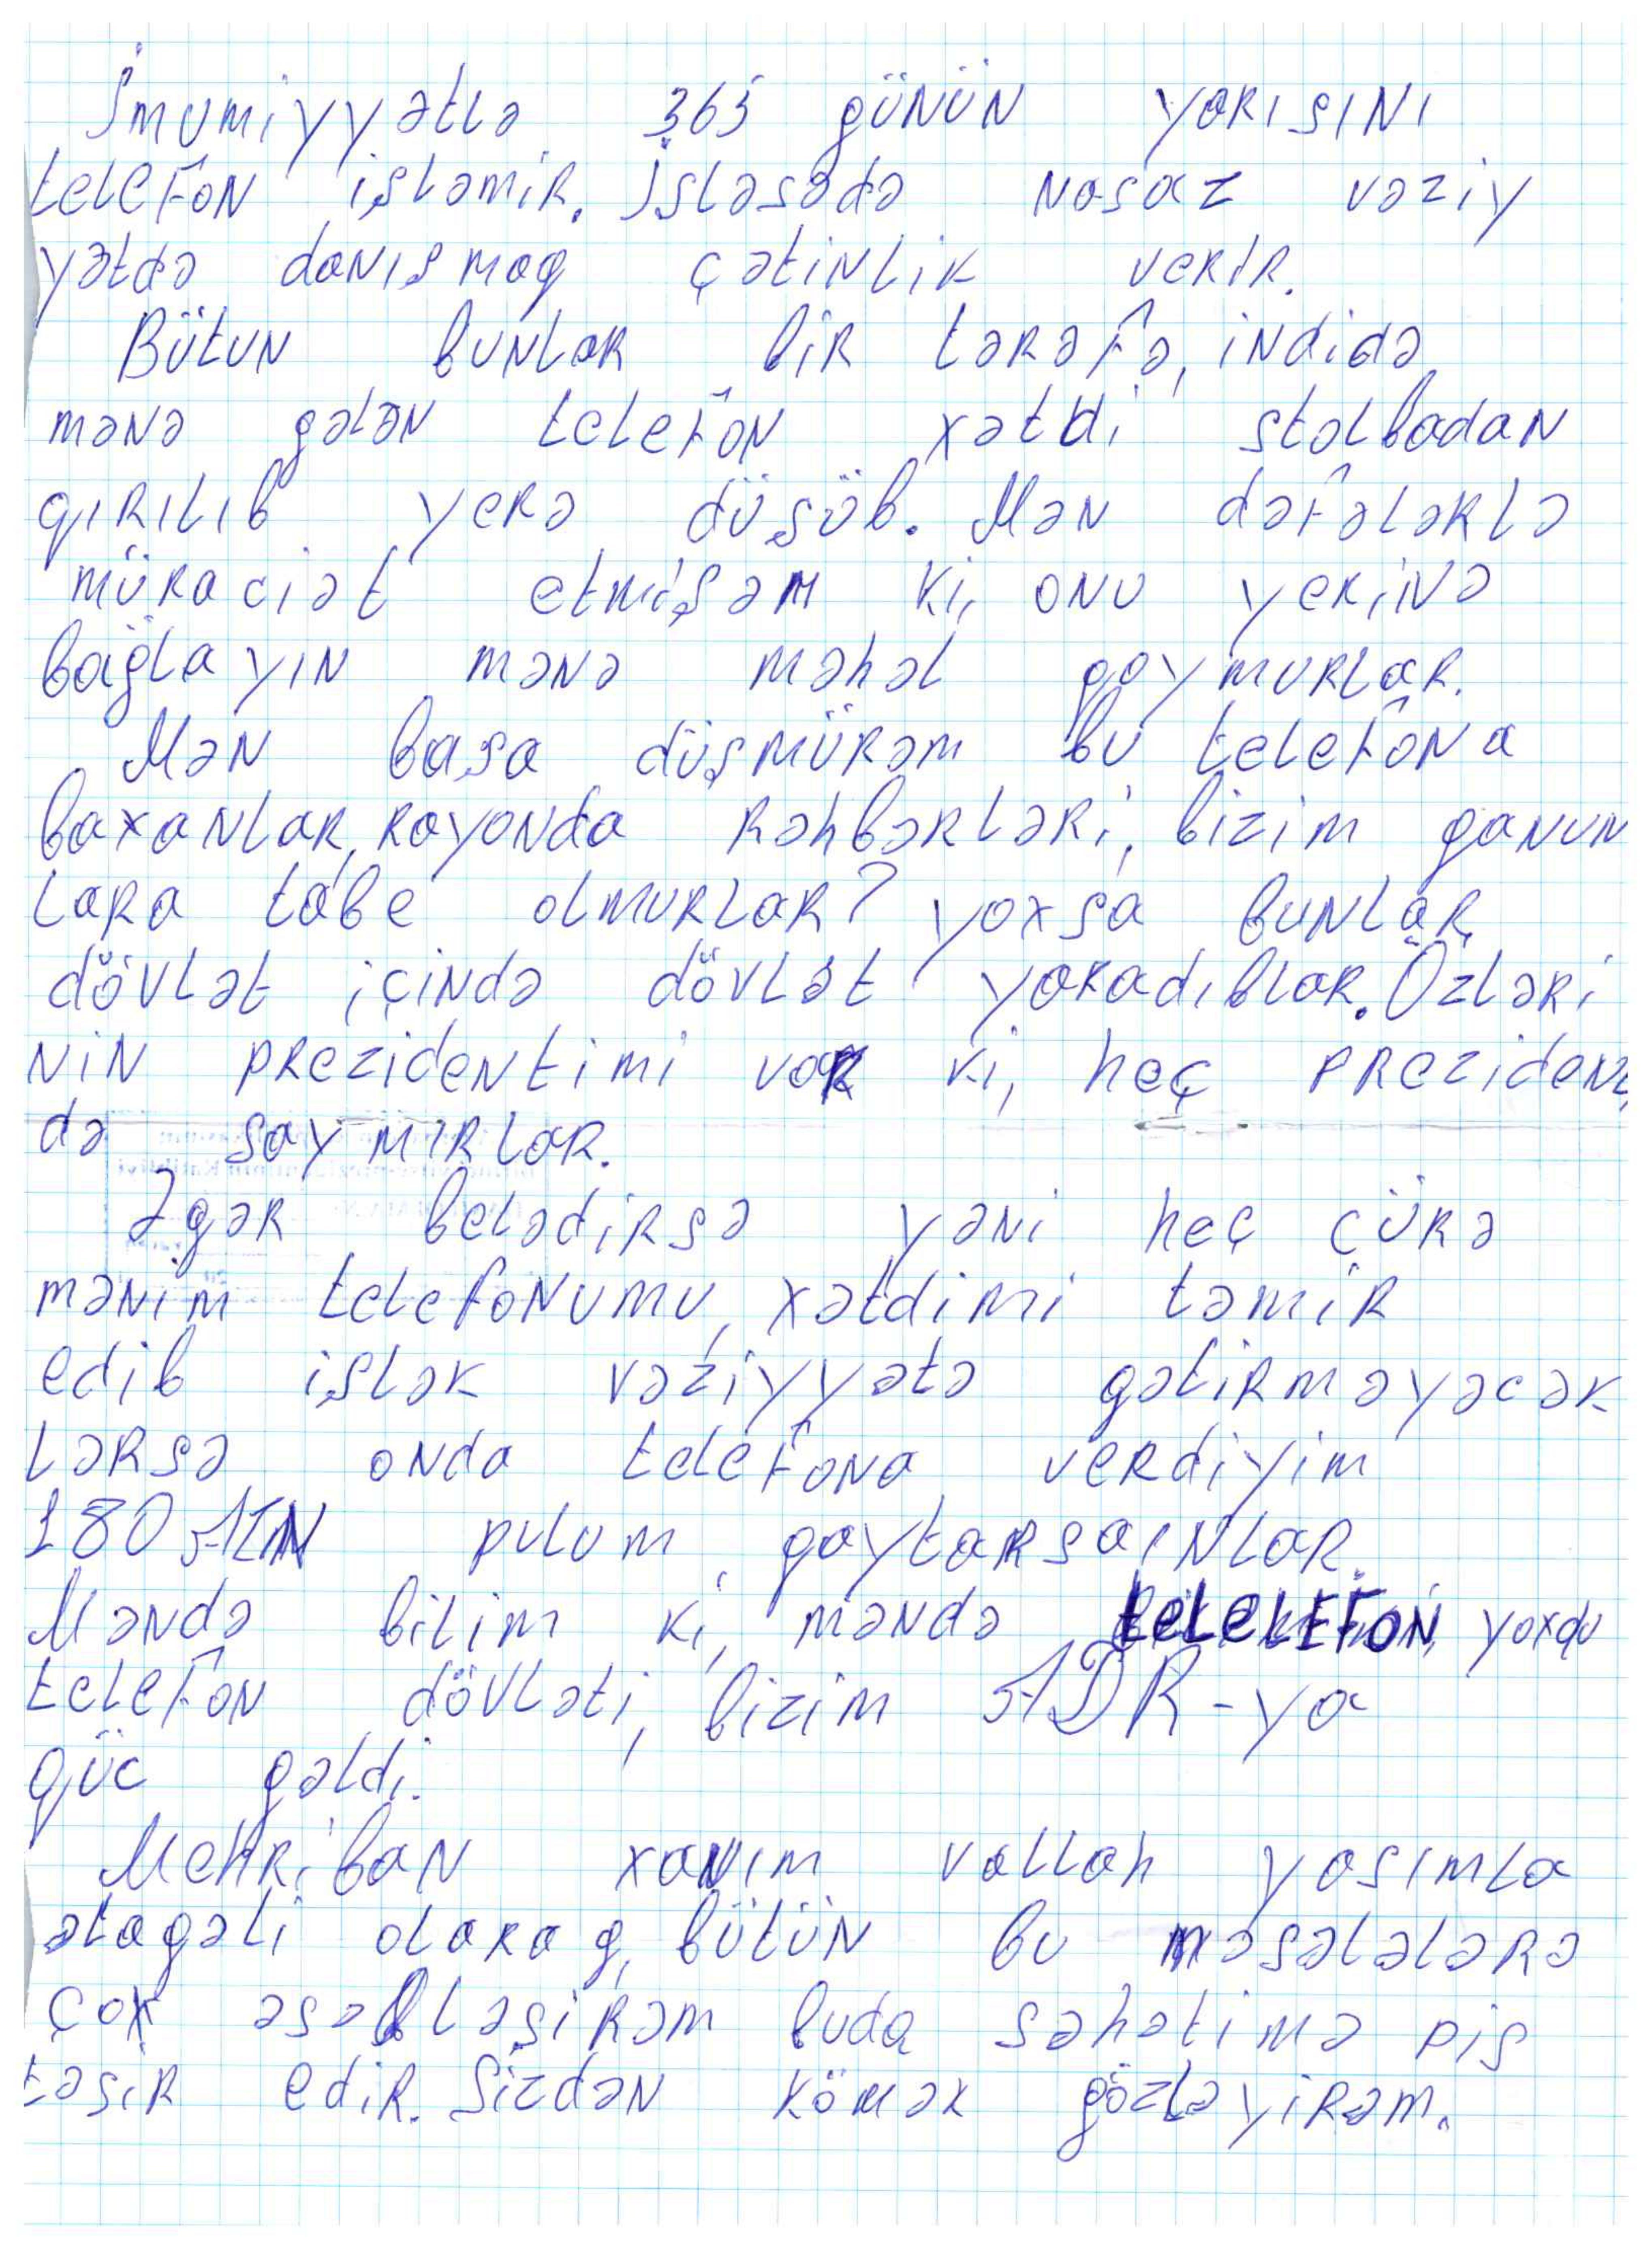 İmumiyyətlə 365 günün yarısını
telefon işləmir. İşləsədə nasaz vəziy
yətdə danışmaq çətinlik verir.
Bütun bunlar bir tərəfə, indidə
mənə gələn telefon xətdi stolbadan
qırılıb yerə düşüb. Mən dəfələrlə
müraciət etmişəm ki, onu yerinə
bağlayın mənə məhəl qoymurlar.
Mən başa düşmürəm bu telefona
baxanlar, rayonda rəhbərləri, bizim qanun
lara tabe olmurlar? yoxsa bunlar
dövlət içində dövlət yaradıblar. Özləri
nin prezidentimi var ki, heç prezident
də saymırlar.
Əgər belədirsə yəni heç cürə
mənim telefonumu, xətdimi təmir
edib işlək vəziyyətə gətirməyəcək
lərsə onda telefona verdiyim
180 AZN pulum qaytarsaınlar.
Məndə bilim ki, məndə telelefon, yoxdu
telefon dövləti, bizim ADR-ya
güc gəldi.
Mehriban xanım vallah yaşımla
əlaqəli olaraq, bütün bu məsələlərə
çox əsəbləşirəm buda səhətimə pis
təsir edir. Sizdən kömək gözləyirəm.